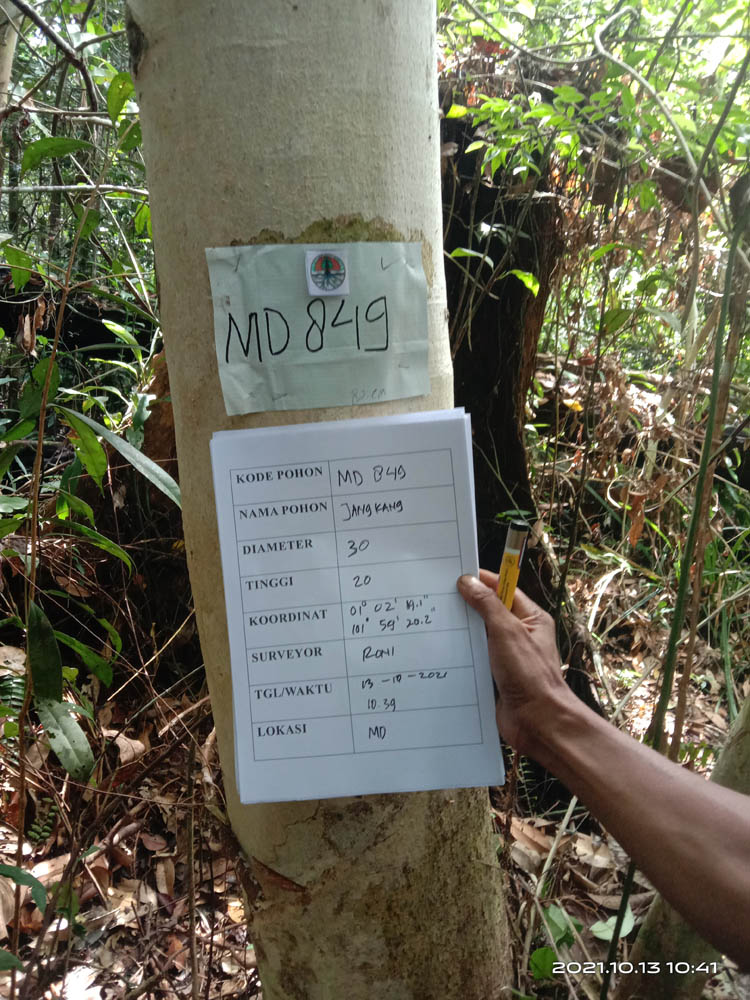 MD 849
KODE POHON MD 849
NAMA POHON JANGKANG
DIAMETER 30
TINGGI 20
KOORDINAT 01° 02' 19.1"
101° 59' 20.2"
SURVEYOR RONI
TGL/WAKTU 13 -10 - 2021
10.39
LOKASI MD
2021.10.13 10:41